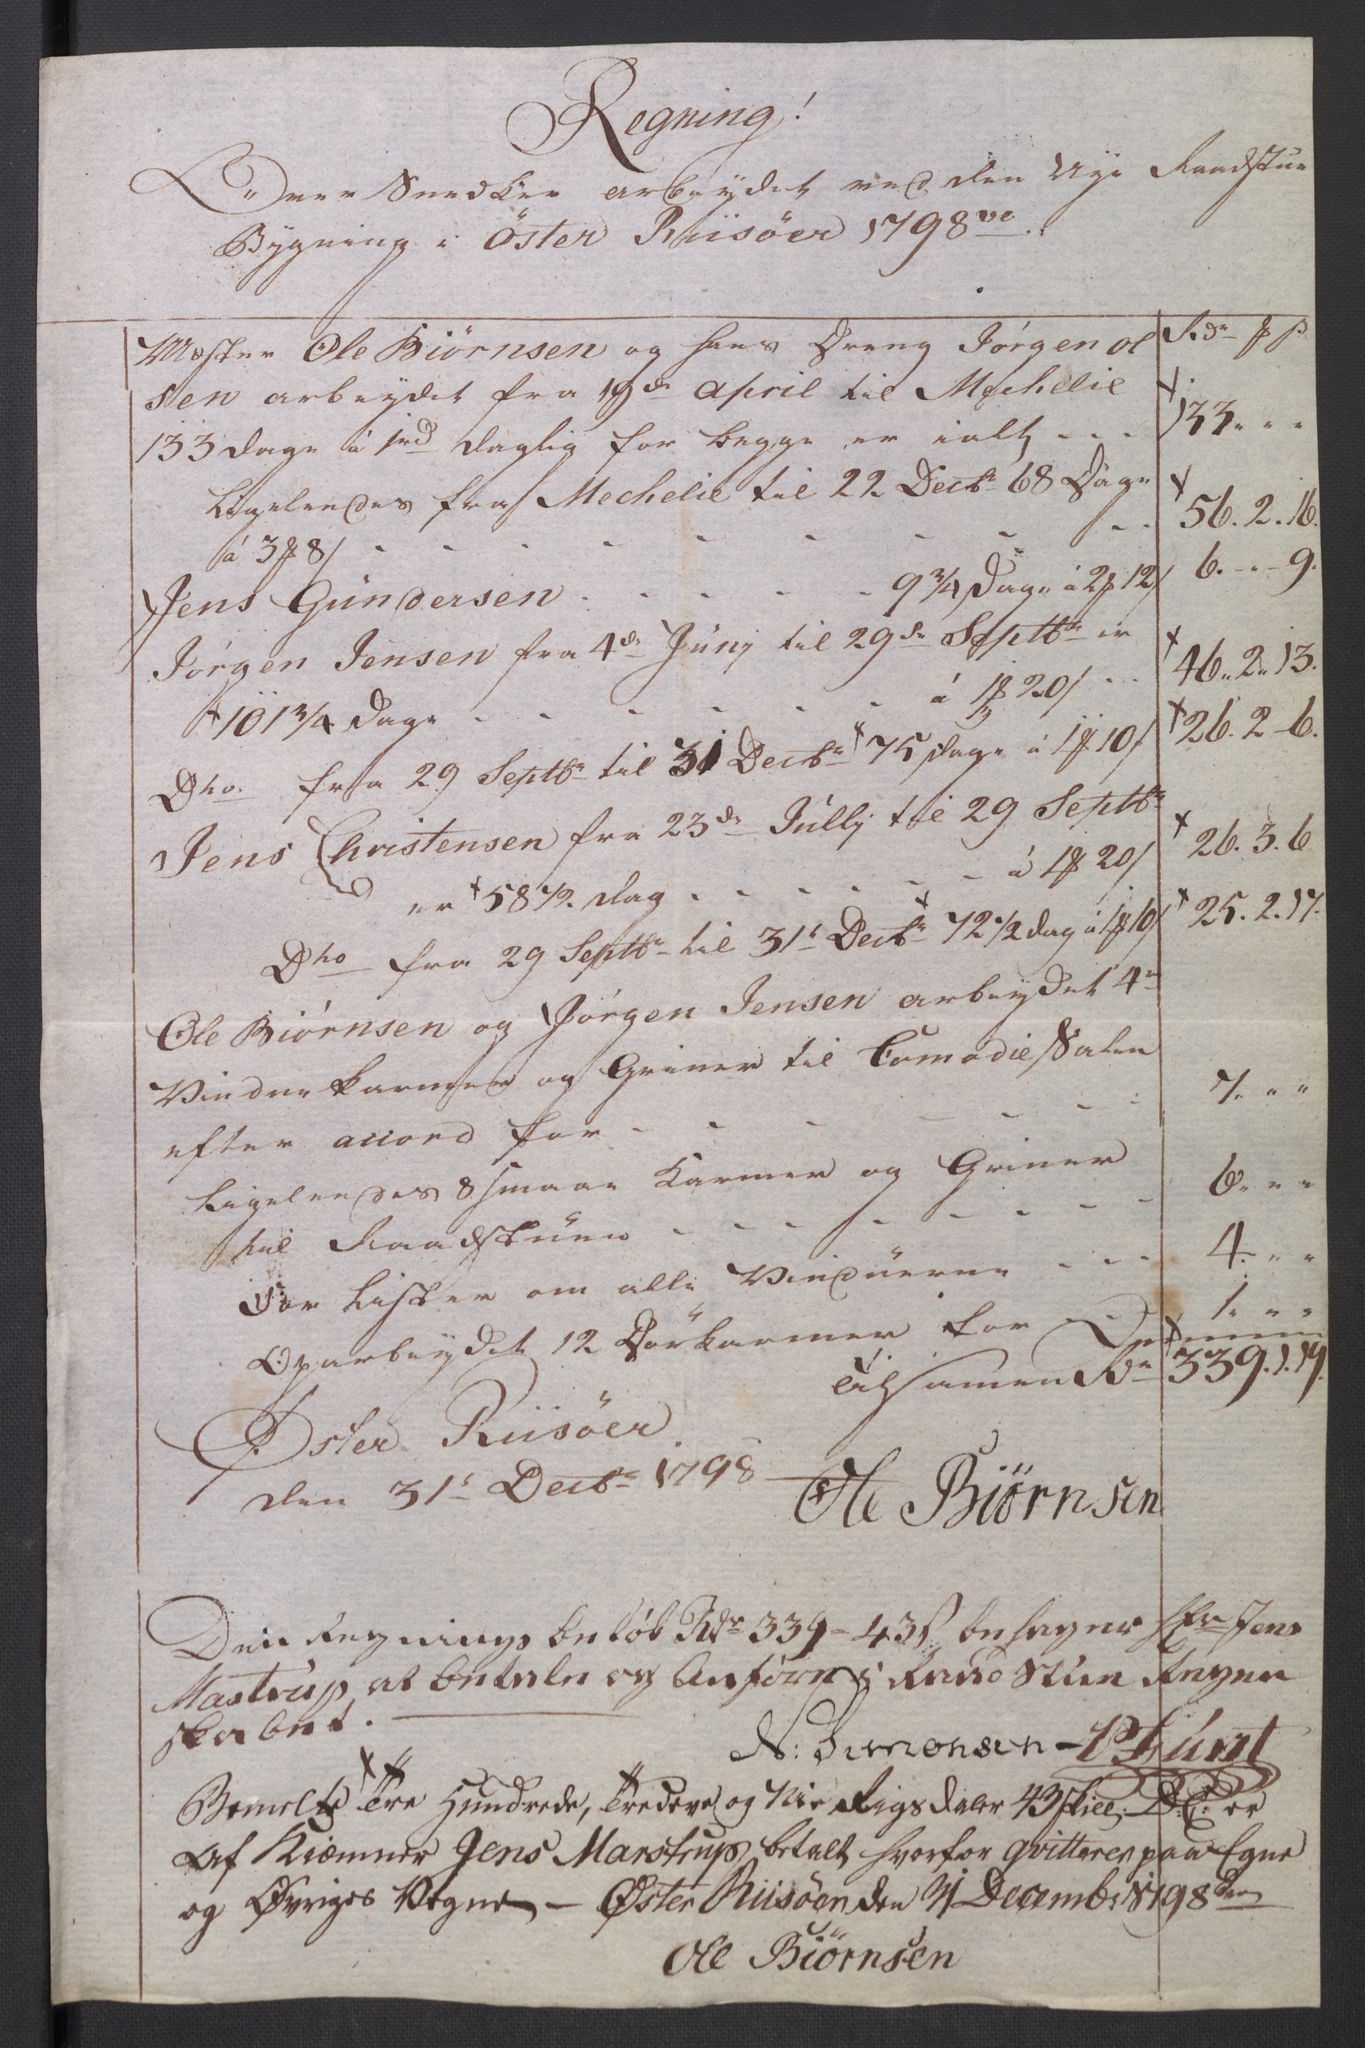 Regning!
Over Snedker arbeydet ved den Nye Raadstue
Bygning i Öster Riisöer 1798ve.
Rdr ₰ ß
Mester Ole Biörnsen og hans Dreng Jörgen Ol
sen arbeydet fra 19de april til Mechelie
133 Dage á 1rd daglig for begge er ialt - - - 133. " "
Ligeleedes fra Mechelie til 22 Decbr 68 Dage
á 3 ₰ 8 ß - - - - - - - - 56. 2. 16.
Jens Gundersen - - - - - 9 3/4 Dage á 2 ₰ 12 ß 6. - - 9.
Jörgen Jensen fra 4de Juny til 29de Septbr er
101 3/4 Dage - - - - - - á 1 ₰ 20 ß - - 46. 2. 13.
Dho. fra 29 Septbr til 31 Decbr 75 dage á 1 ₰ 10 ß 26. 2 - 6.
Jens Christensen fra 23de Jully til 29 Septbr
er 58 1/2 dag - - - - - - á 1 ₰ 20 ß 26. 3. 6
Dho fra 29 Septbr til 31t Decbr 72 1/2 dag á 1 ₰ 10 ß 25. 2. 17.
Ole Biörnsen og Jörgen Jensen arbeydet 4re
Vindue karmer og Griner til Comædie Salen
efter accord for - - - - - - 7. " "
Ligeleedes 8 smaae Karmer og Griner
til Raadstuen - - - - - - - - 6. " "
For Lister om alle Vinduerne - - - 4. " "
Oparbeydet 12 Dörkarmer for - - 1. " "
Tilsamen Rdr 339. 1. 19.
Öster Riisöer
den 31t Decbr 1798
Ole Biörnsen
Den Regnings belöb Rdr 339 - 43 ß behager Hr Jens
Mastrup at betale og Anföre i Raad Stue Regne
skabet.
N: Simonsen - P Fürst
Bemelte Tre Hundrede, Tredeve og Nie Rigsdaler 43 skill; D.C. er
af Kiemner Jens Marstrup betalt hvorfor qvitterer paa Egne
og Övriges Vegne - Öster Riisöer den 31 Decembr 1798
Ole Biörnsen